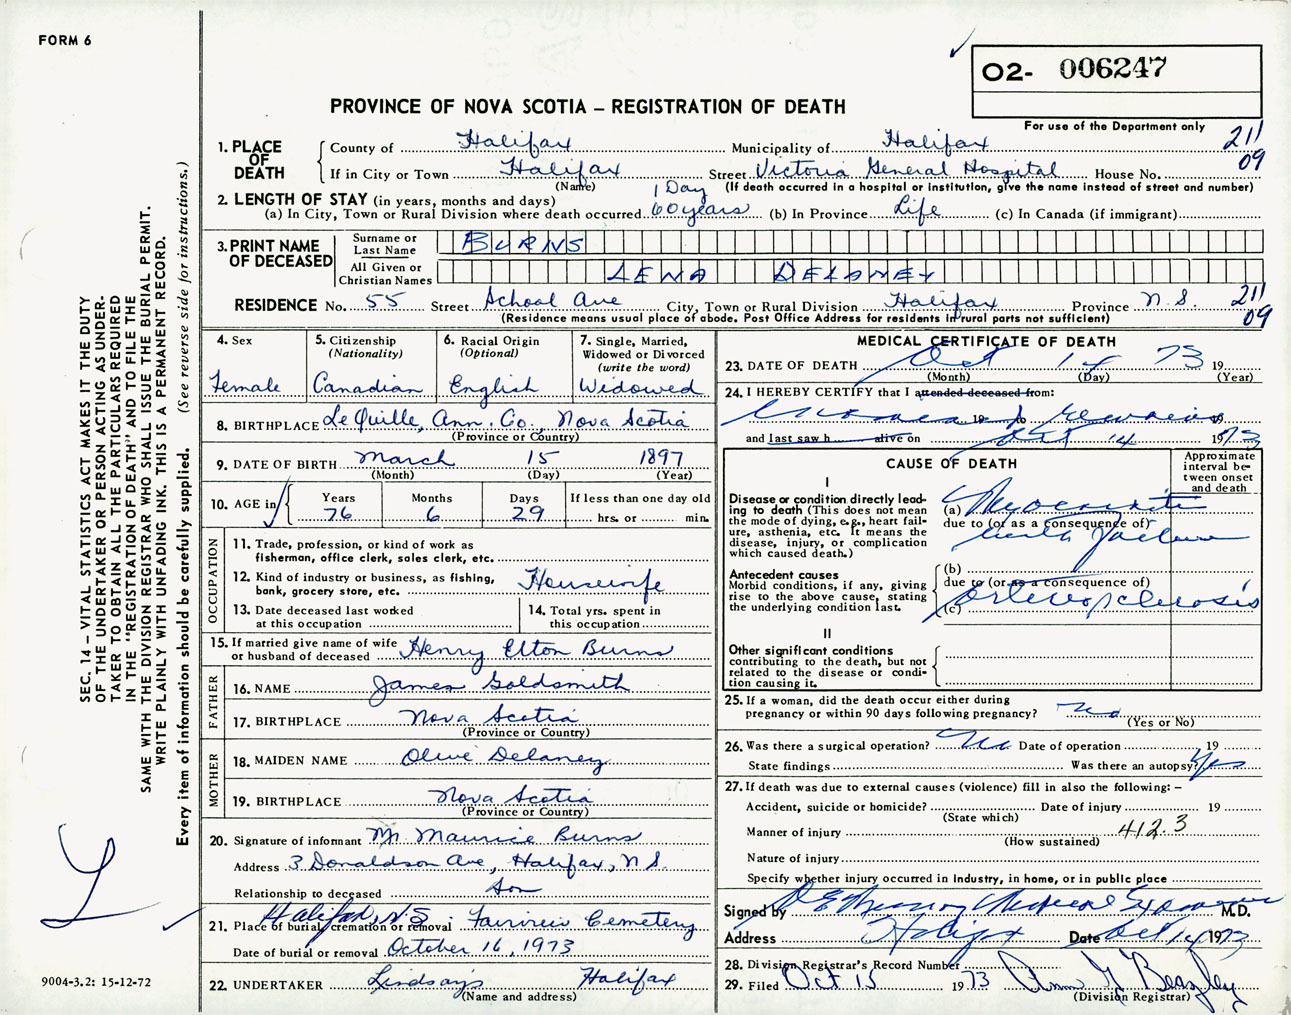 FORM 6
O2- 006247
PROVINCE OF NOVA SCOTIA – REGISTRATION OF DEATH
For use of the Department only
1. PLACE OF DEATH
County of Halifax Municipality of Halifax 211
If in City or Town Halifax Street Victoria General Hospital House No. 09
(Name) (If death occurred in a hospital or institution, give the name instead of street and number)
2. LENGTH OF STAY (in years, months and days) 1 Day
(a) In City, Town or Rural Division where death occurred 60 years (b) In Province Life (c) In Canada (if immigrant)
3. PRINT NAME OF DECEASED
Surname or Last Name BURNS
All Given or Christian Names LENA DELANEY
RESIDENCE No. 55 Street School Ave City, Town or Rural Division Halifax Province N.S. 211
(Residence means usual place of abode. Post Office Address for residents in rural parts not sufficient) 09
4. Sex
Female
5. Citizenship
(Nationality)
Canadian
6. Racial Origin
(Optional)
English
7. Single, Married, Widowed or Divorced
(write the word)
Widowed
8. BIRTHPLACE LeQuille, Ann. Co., Nova Scotia
(Province or Country)
9. DATE OF BIRTH March 15 1897
(Month) (Day) (Year)
10. AGE in
Years Months Days If less than one day old
76 6 29 hrs. or min.
OCCUPATION
11. Trade, profession, or kind of work as
fisherman, office clerk, sales clerk, etc.
12. Kind of industry or business, as fishing,
bank, grocery store, etc. Housewife
13. Date deceased last worked
at this occupation
14. Total yrs. spent in
this occupation
15. If married give name of wife
or husband of deceased Henry Elton Burns
FATHER
16. NAME James Goldsmith
17. BIRTHPLACE Nova Scotia
(Province or Country)
MOTHER
18. MAIDEN NAME Olive Delaney
19. BIRTHPLACE Nova Scotia
(Province or Country)
20. Signature of informant Mr. Maurice Burns
Address 3 Donaldson Ave, Halifax, N.S.
Relationship to deceased Son
Halifax, N.S.
21. Place of burial, cremation or removal Fairview Cemetery
Date of burial or removal October 16, 1973
22. UNDERTAKER Lindsay's Halifax
(Name and address)
MEDICAL CERTIFICATE OF DEATH
23. DATE OF DEATH Oct 14 73 19
(Month) (Day) (Year)
24. I HEREBY CERTIFY that I attended deceased from:
19 to 19
and last saw h alive on Oct 14 1973
CAUSE OF DEATH
Approximate interval between onset and death
I
Disease or condition directly lead-
ing to death (This does not mean
the mode of dying, e.g., heart fail-
ure, asthenia, etc. It means the
disease, injury, or complication
which caused death.)
(a)
due to (or as a consequence of)
Antecedent causes
Morbid conditions, if any, giving
rise to the above cause, stating
the underlying condition last.
(b)
due to (or as a consequence of)
(c) Arteriosclerosis
II
Other significant conditions
contributing to the death, but not
related to the disease or condi-
tion causing it.
25. If a woman, did the death occur either during
pregnancy or within 90 days following pregnancy? No
(Yes or No)
26. Was there a surgical operation? No Date of operation 19
State findings Was there an autopsy? Yes
27. If death was due to external causes (violence) fill in also the following: –
Accident, suicide or homicide? Date of injury 19
(State which)
Manner of injury 412.3
(How sustained)
Nature of injury
Specify whether injury occurred in industry, in home, or in public place
Signed by Medical Examiner M.D.
Address Halifax Date Oct 14 1973
28. Division Registrar's Record Number
29. Filed Oct 15 1973
(Division Registrar)
SEC. 14 – VITAL STATISTICS ACT MAKES IT THE DUTY
OF THE UNDERTAKER OR PERSON ACTING AS UNDER-
TAKER TO OBTAIN ALL THE PARTICULARS REQUIRED
IN THE "REGISTRATION OF DEATH" AND TO FILE THE
SAME WITH THE DIVISION REGISTRAR WHO SHALL ISSUE THE BURIAL PERMIT.
WRITE PLAINLY WITH UNFADING INK. THIS IS A PERMANENT RECORD.
Every item of information should be carefully supplied. (See reverse side for instructions.)
9004-3.2: 15-12-72